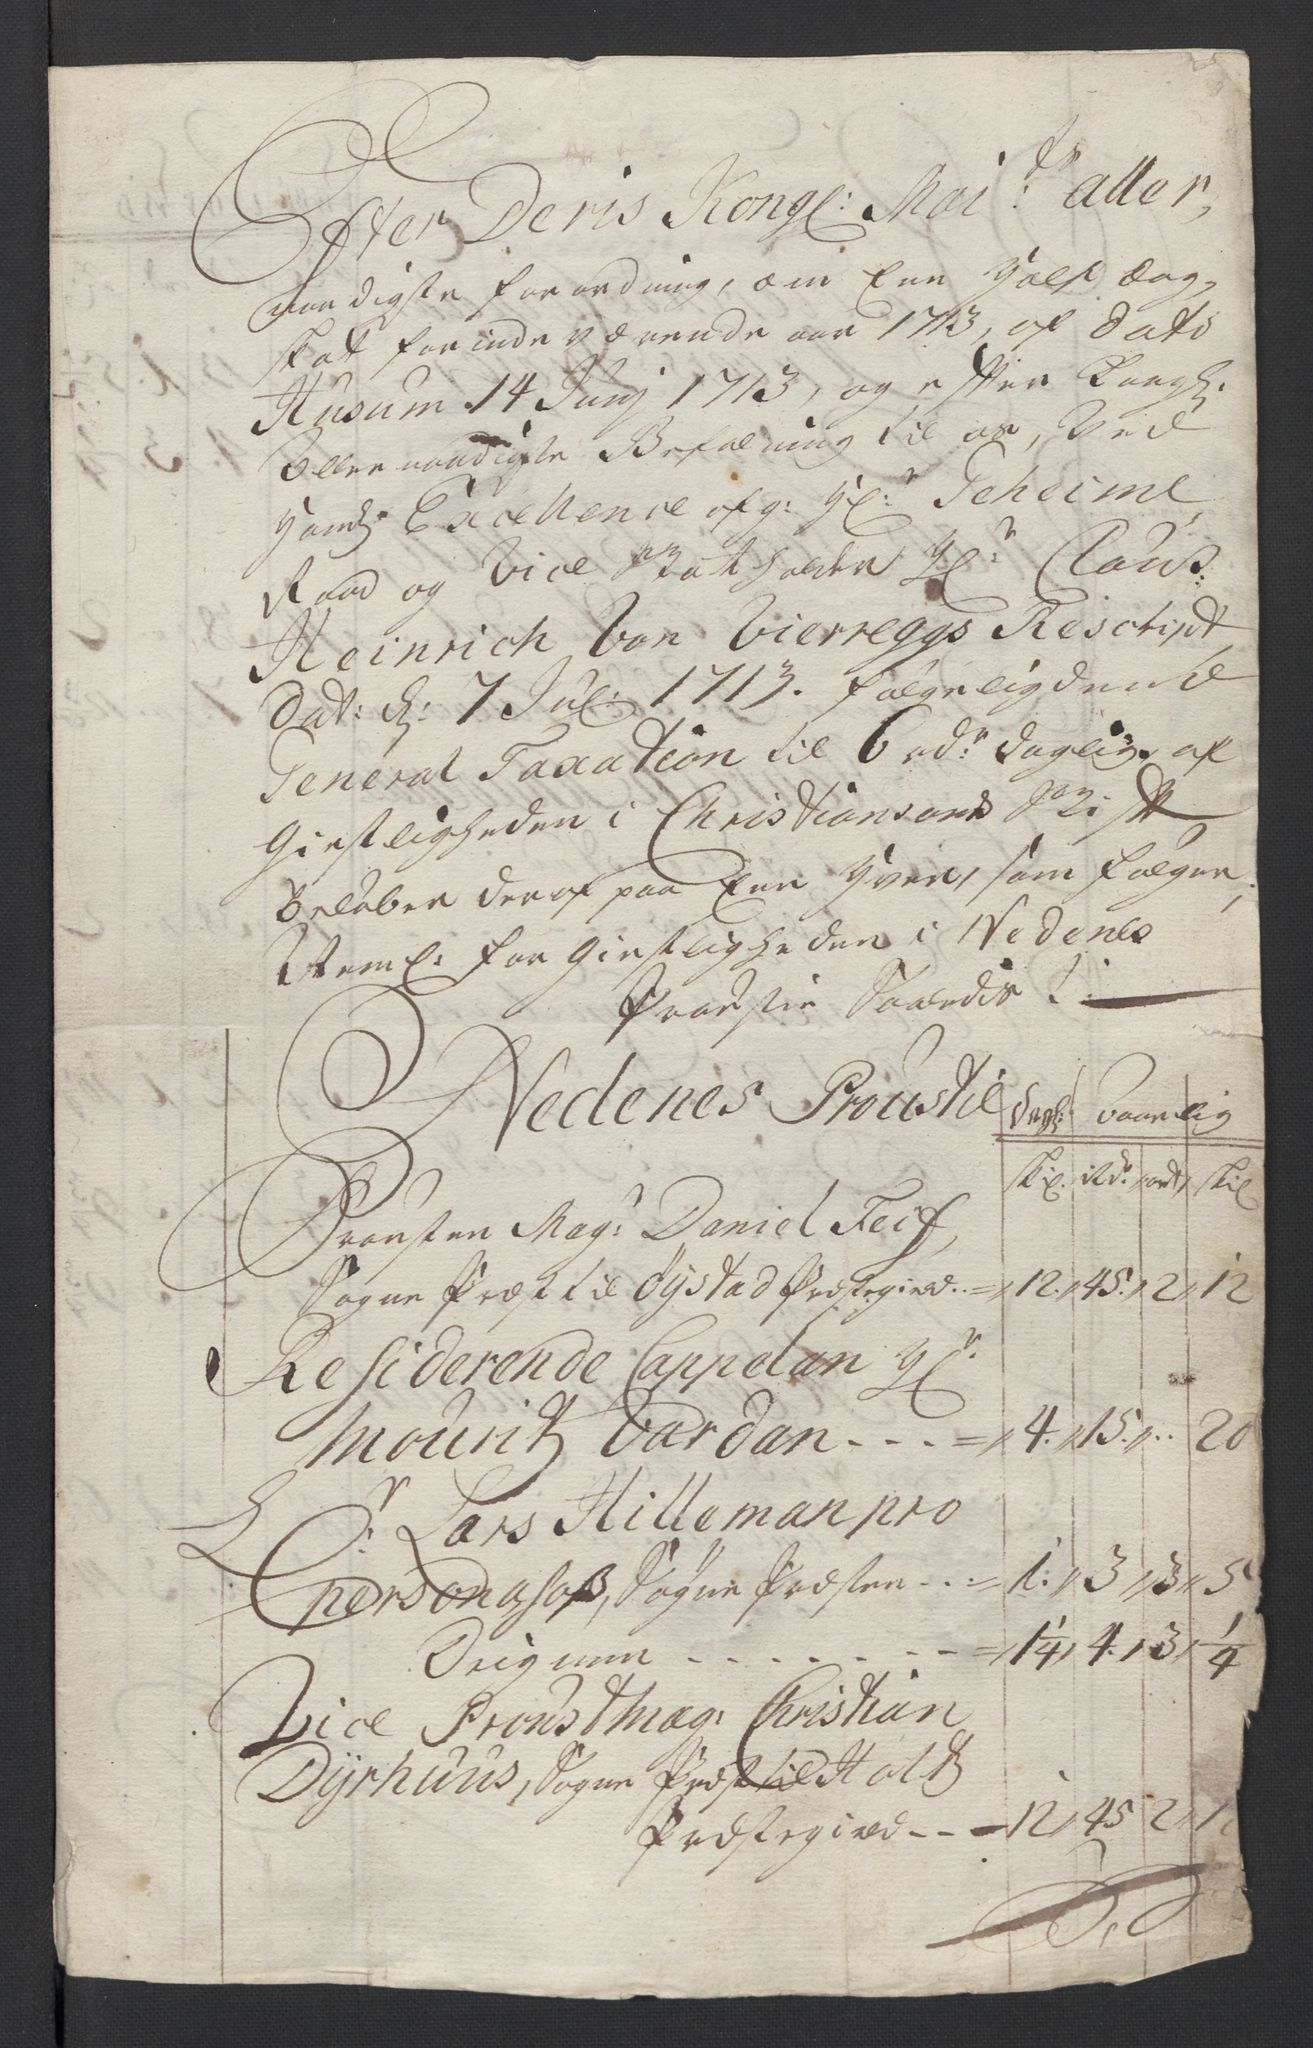 Efter Deris Kongl: Mai:ts aller,
naadigste forordning, om Een Half dag,
skat for indeværende aar 1713, af dato
Husum 14 Junj 1713, og efter Kongl:
Allernaadigste Befalning til os, Ved
Hands Excellence Hr: Geheime
Raad og Vice Statholder Hr: Claus:
Heinrich Von Vierreggs Rescript
Dat: d: 7 Jul: 1713. følgelig dend
General Taxation til 6 rdr daglig, af
Giestligheden i Christiansands Stift
Beløber deraf paa Een Hver, som følger,
Neml: for Giestligheden i Nedenes
Prousti Saaledis:
Nedenes Proustie dagl: aarlig
skil. Rdr. ort, skil
Prousten Mag: Daniel Feif,
Sogne Præst til Øystad Præstegield.. = 12. 45. 2 12
Residerende Cappelan Hr:
Mouritz Vardan - - - = 4. 15. .. 20
Hr: Lars Hilleman pro
persona sol, Sogne Præsten - - = 1. 3 3 5
Deignen - - - - - - - = 1 1/4 4. 3 1/4
Vice Proust Mag: Christian
Dyrhuus, Sogne Præst til Holt
Præstegield - - - 12 45 2 12